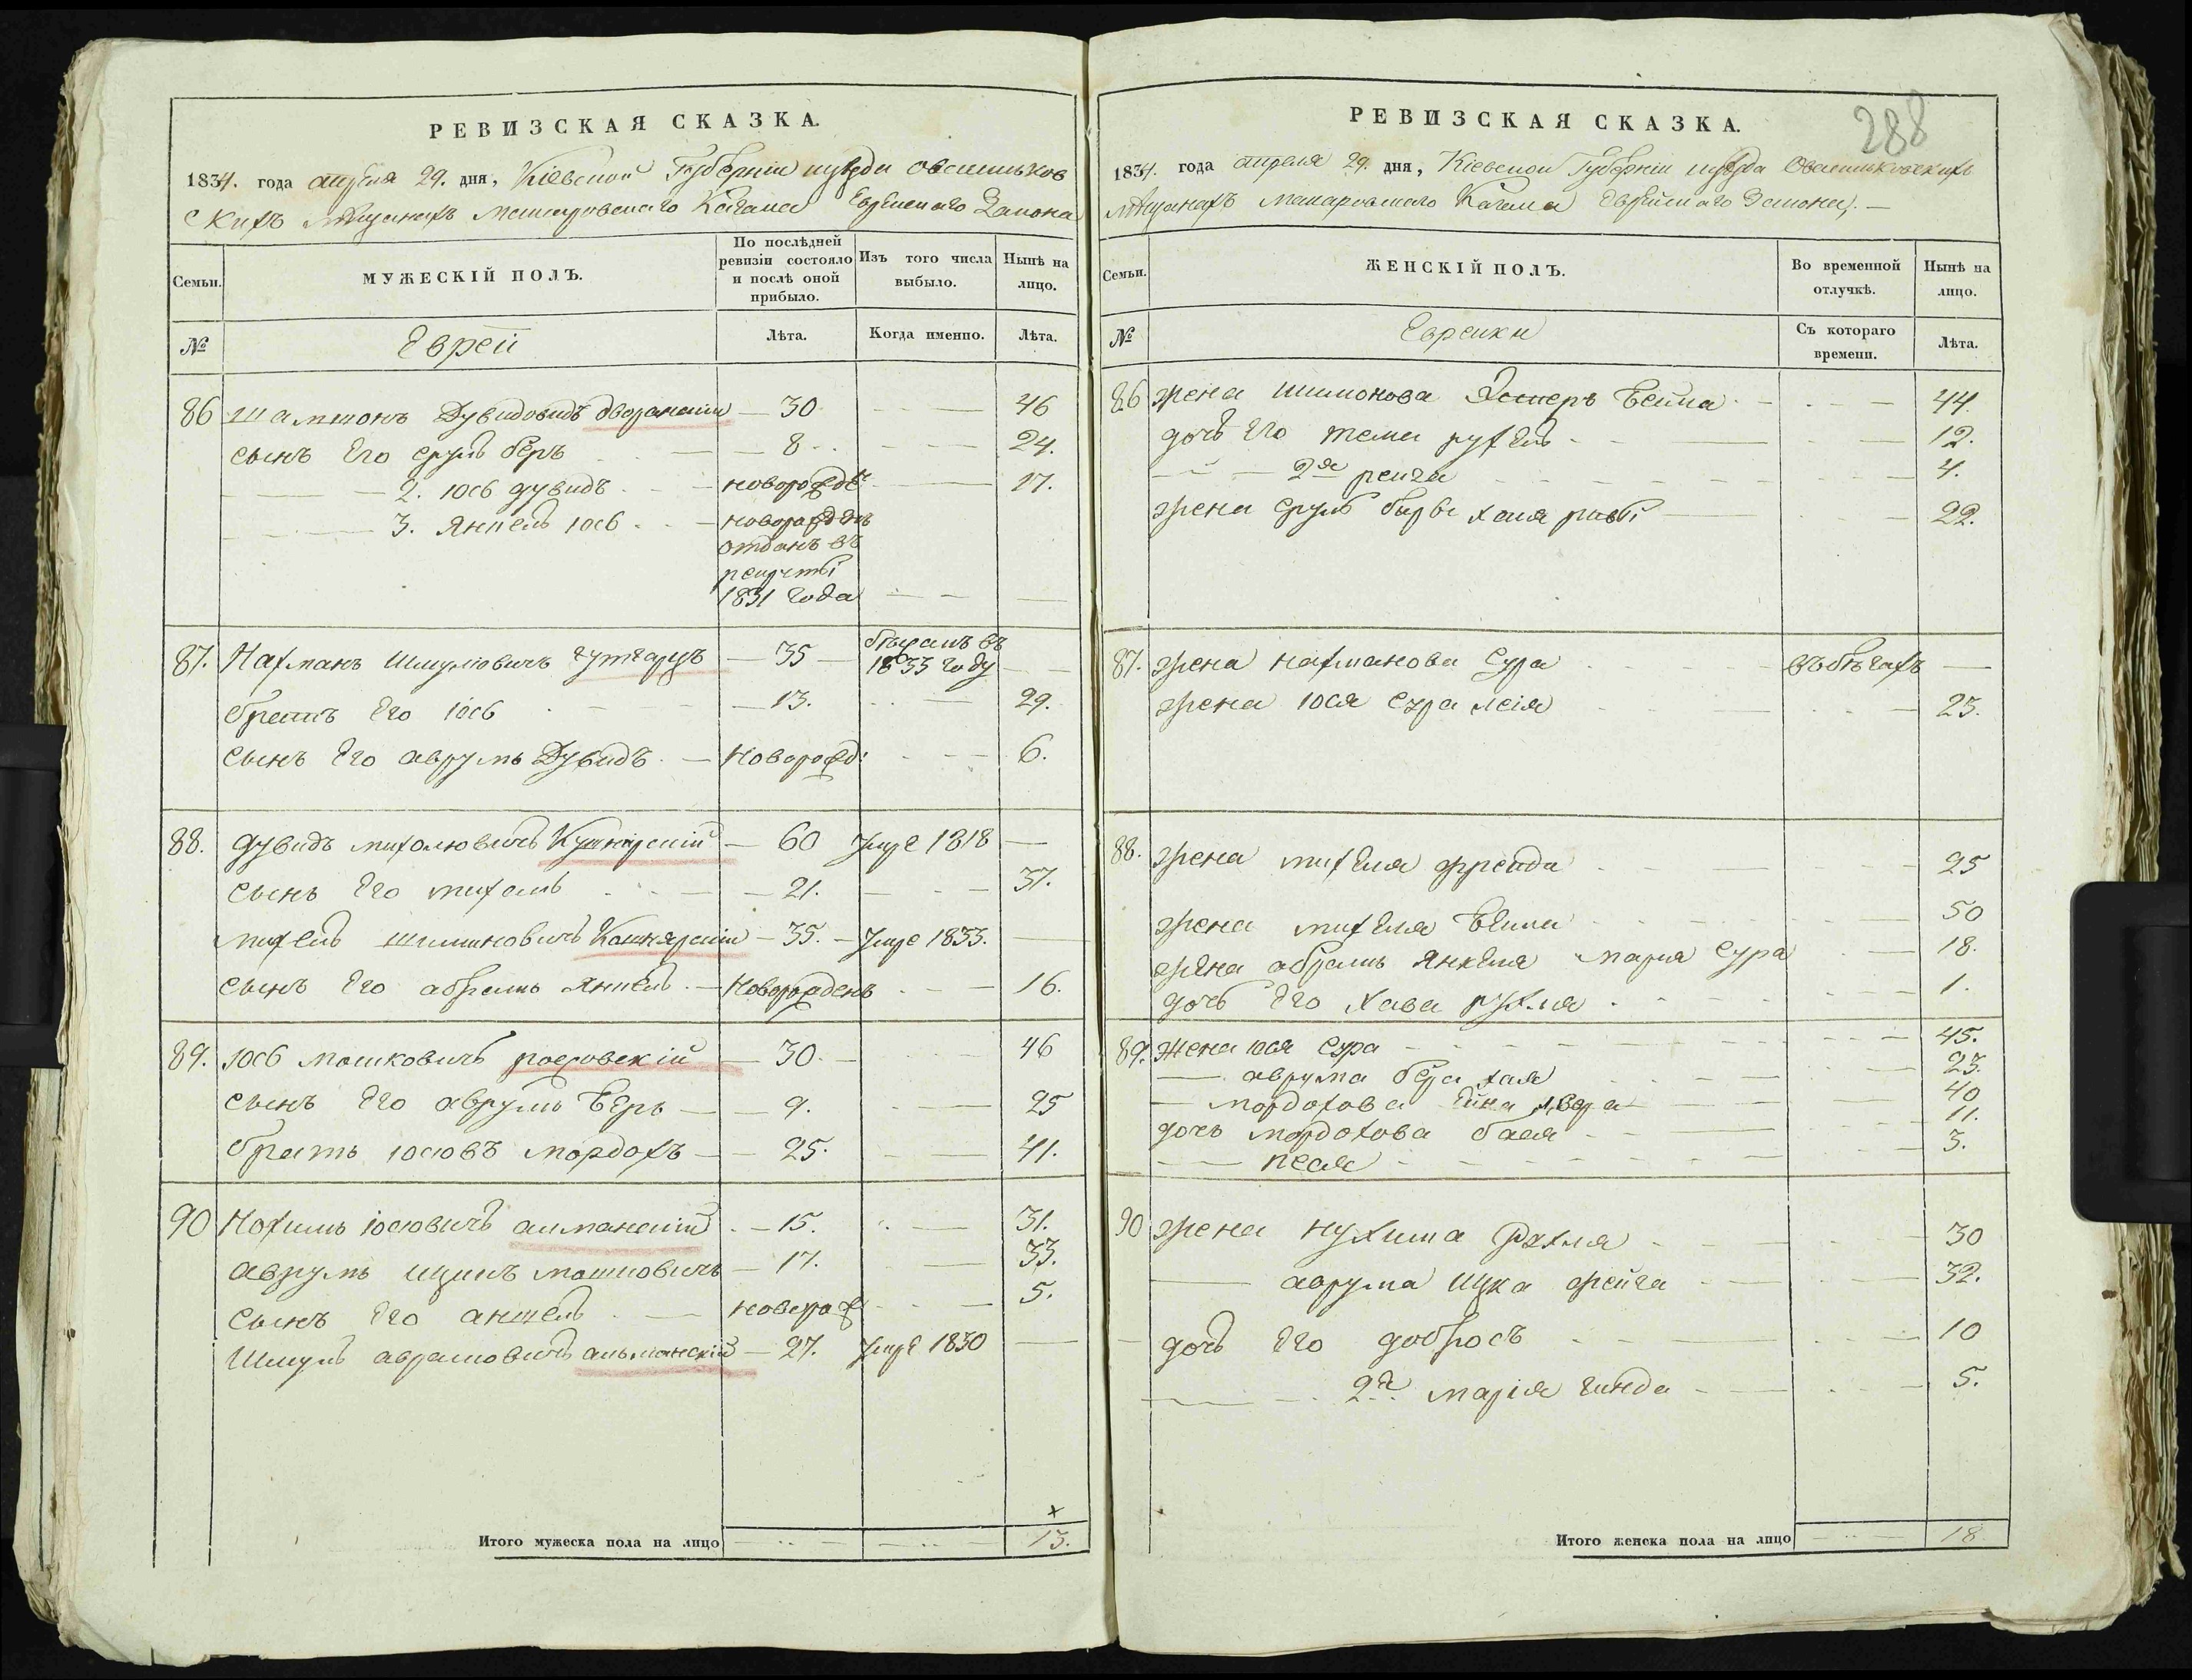 РЕВИЗСКАЯ СКАЗКА.
1834. года апреля 29. дня, Кіевской Губерніи уезда
скихъ мѣщанахъ Макаровскаго Кагала Еврейскаго Закона
Семьи.
МУЖЕСКІЙ ПОЛЪ.
По послѣдней ревизіи состояло и послѣ оной прибыло.
Изъ того числа выбыло.
Нынѣ на лицо.
№
Еврей
Лѣта.
Когда именно.
Лѣта.
86 Шамшонъ Дувидовичъ — 30 — 46
сынъ Его сруль беръ — 8 — 24.
— 2. іосб дувидъ — новорожд — 17.
— 3. Янкель іосб — новорожденъ
отданъ въ
рекруты
1831 Года — —
87. Нахманъ Шмулювичъ гутгарцъ — 35 — въ
1833 году —
братъ Его іосб — 13. — 29.
сынъ Его аврумъ Дувидъ — Новорожд: — 6.
88. дувидъ михолювичъ Кушнірскій — 60 Умре 1818 —
сынъ Его михель — 21. — 37.
михель шимоновичъ — 35. — Умре 1833. —
сынъ Его абрамъ Янкель — Новорожденъ — 16.
89. іосб мошковичъ — 30. — 46
сынъ Его аврумъ Беръ — 9. — 25
братъ іосювъ мордохъ — 25. — 41.
90 Нохимъ іосювичъ алманскій — 15. — 31.
аврумъ ицикъ мошковичъ — 17. — 33.
сынъ Его аншель — новорож — 5.
Шмуль аврамовичъ альманскій — 27. Умре 1830 —
Итого мужеска пола на лицо — — 13.
288
РЕВИЗСКАЯ СКАЗКА.
1834. года апреля 29. дня, Кіевской Губерніи уезда
мѣщанахъ макаровскаго Кагала Еврейскаго Закона, —
Семьи.
ЖЕНСКІЙ ПОЛЪ.
Во временной отлучкѣ.
Нынѣ на лицо.
№
Еврейки
Съ котораго времени.
Лѣта.
86 жена шимонова Бейла — 44.
дочь Его рухель — 12.
— 2я рейза — 4.
жена сруль хая — 22.
87. жена нахманова сура — въ бѣгахъ —
жена іося сура лея — 23.
88. жена михеля фрейда — 25
жена михеля Бейла — 50
жена абрамъ Янкеля марія сура — 18.
дочь Его хава рухля — 1.
89. жена іося сура — 45.
— аврума бера хая — 23.
— мордохова — 40
дочь мордохова бася — 11.
— песя — 3.
90 жена нухима рахля — 30
— аврума ицка фейга — 32.
дочь Его добрось — 10
— 2я марія гинда — 5.
Итого женска пола на лицо — 18